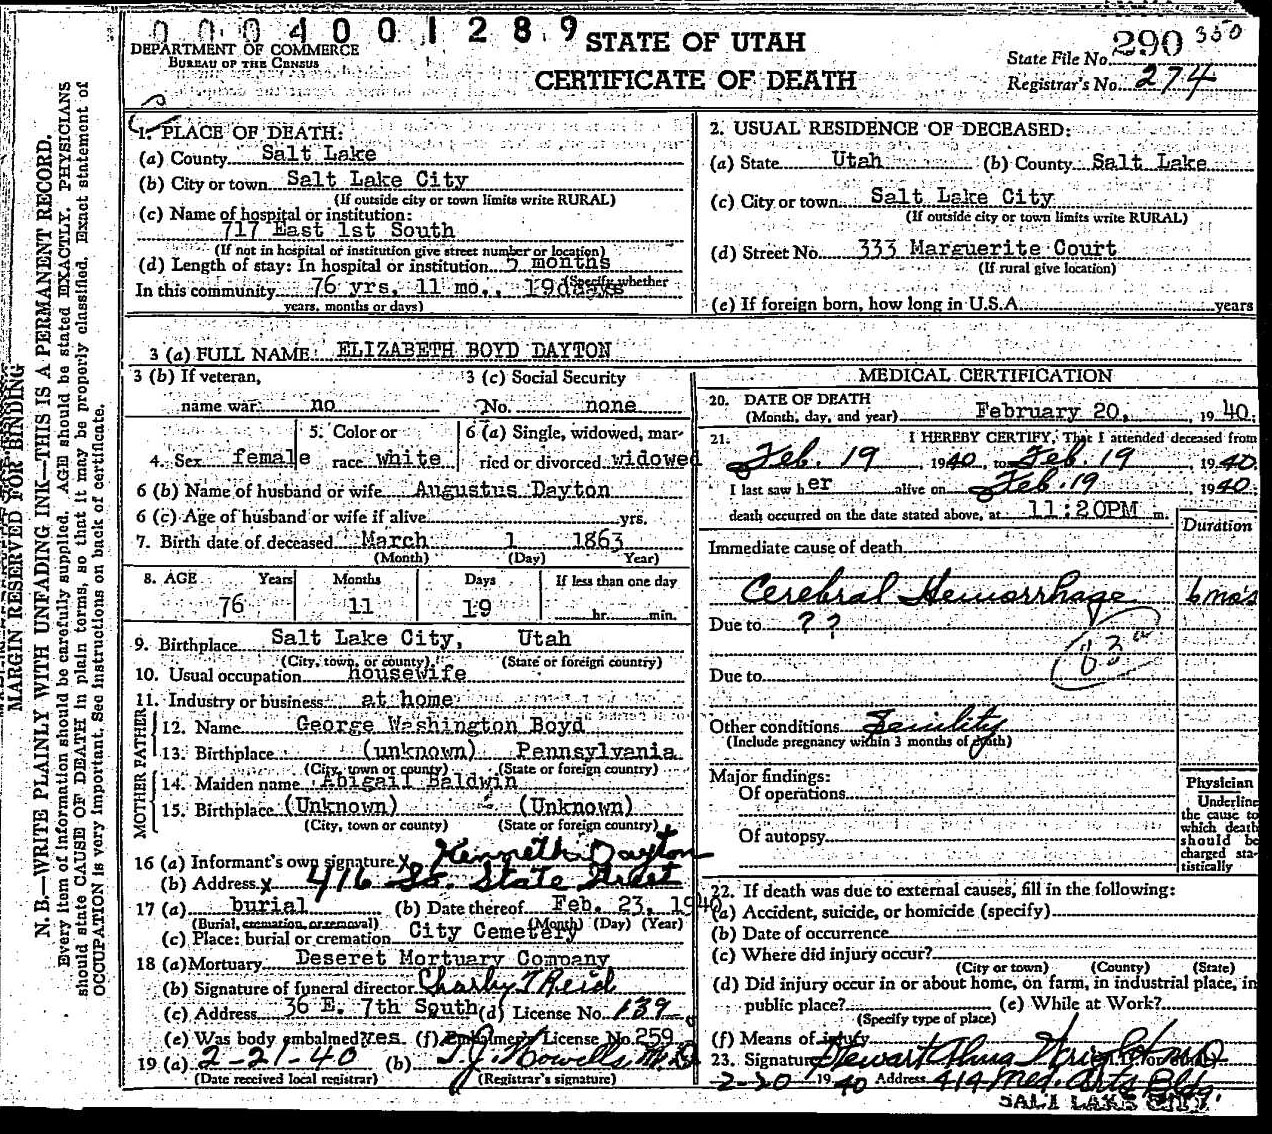 0 0 0 4 0 0 1 2 8 9
DEPARTMENT OF COMMERCE
BUREAU OF THE CENSUS
STATE OF UTAH
CERTIFICATE OF DEATH
State File No. 290 350
Registrar's No. 274
MARGIN RESERVED FOR BINDING
N. B.—WRITE PLAINLY WITH UNFADING INK—THIS IS A PERMANENT RECORD.
Every item of information should be carefully supplied. AGE should be stated EXACTLY. PHYSICIANS
should state CAUSE OF DEATH in plain terms, so that it may be properly classified. Exact statement of
OCCUPATION is very important. See instructions on back of certificate.
1. PLACE OF DEATH:
(a) County Salt Lake
(b) City or town Salt Lake City
(If outside city or town limits write RURAL)
(c) Name of hospital or institution:
717 East 1st South
(If not in hospital or institution give street number or location)
(d) Length of stay: In hospital or institution 5 months
(Specify whether
In this community 76 yrs, 11 mo., 19 days
years, months or days)
2. USUAL RESIDENCE OF DECEASED:
(a) State Utah (b) County Salt Lake
(c) City or town Salt Lake City
(If outside city or town limits write RURAL)
(d) Street No. 333 Marguerite Court
(If rural give location)
(e) If foreign born, how long in U.S.A. years
3 (a) FULL NAME: ELIZABETH BOYD DAYTON
3 (b) If veteran, 3 (c) Social Security
name war no No. none
4. Sex female 5. Color or race white 6 (a) Single, widowed, married or divorced widowed
6 (b) Name of husband or wife Augustus Dayton
6 (c) Age of husband or wife if alive yrs.
7. Birth date of deceased March 1 1863
(Month) (Day) Year)
8. AGE Years Months Days If less than one day
76 11 19 hr. min.
9. Birthplace Salt Lake City, Utah
(City, town, or county) (State or foreign country)
10. Usual occupation housewife
11. Industry or business at home
FATHER
12. Name George Washington Boyd
13. Birthplace (unknown) Pennsylvania
(City, town or county) (State or foreign country)
MOTHER
14. Maiden name Abigail Baldwin
15. Birthplace (Unknown) (Unknown)
(City, town or county) (State or foreign country)
16 (a) Informant's own signature x Kenneth Dayton
(b) Address x 416 So. State Street
17 (a) burial (b) Date thereof Feb. 23, 1940
(Burial, cremation, or removal) (Month) (Day) (Year)
(c) Place: burial or cremation City Cemetery
18 (a) Mortuary Deseret Mortuary Company
(b) Signature of funeral director Charles T Reid
(c) Address 36 E. 7th South (d) License No. 139
(e) Was body embalmed? yes. (f) Embalmer's License No. 259
19 (a) 2-21-40 (b) T J. Howells M.D
(Date received local registrar) (Registrar's signature)
MEDICAL CERTIFICATION
20. DATE OF DEATH
(Month, day, and year) February 20, 1940.
21. I HEREBY CERTIFY, That I attended deceased from
Feb. 19, 1940, to Feb. 19 1940.
I last saw her alive on Feb. 19, 1940.
death occurred on the date stated above, at 11:20PM m.
Duration
Immediate cause of death
Cerebral Hemorrhage 6 mo's
Due to ? ?
83 a
Due to
Other conditions Senility
(Include pregnancy within 3 months of death)
Major findings:
Of operations
Of autopsy
Physician
Underline
the cause to
which death
should be
charged sta-
tistically
22. If death was due to external causes, fill in the following:
(a) Accident, suicide, or homicide (specify)
(b) Date of occurrence
(c) Where did injury occur?
(City or town) (County) (State)
(d) Did injury occur in or about home, on farm, in industrial place, in
public place? (e) While at Work?
(Specify type of place)
(f) Means of injury
23. Signature Stewart Wright M D
2-20 1940 Address 414 Med. Arts Bldg.
SALT LAKE CITY